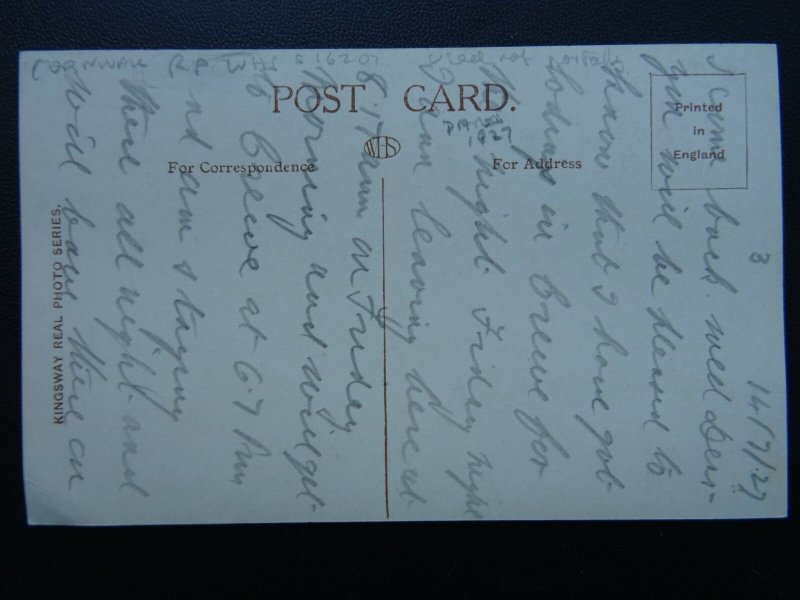 POST CARD.
For Correspondence
For Address
Printed
in
England
WHS
KINGSWAY REAL PHOTO SERIES.
CORNWALL RP WHS S 16207
1927
3
14/7/27
I come back. well
you will be pleased to
know that I have got
Lodgs in Crewe for
night. Friday night
I am leaving here at
8.17 am on Friday
morning and will get
to Crewe at 6.7 pm
and am staying
there all night and
will leave there on